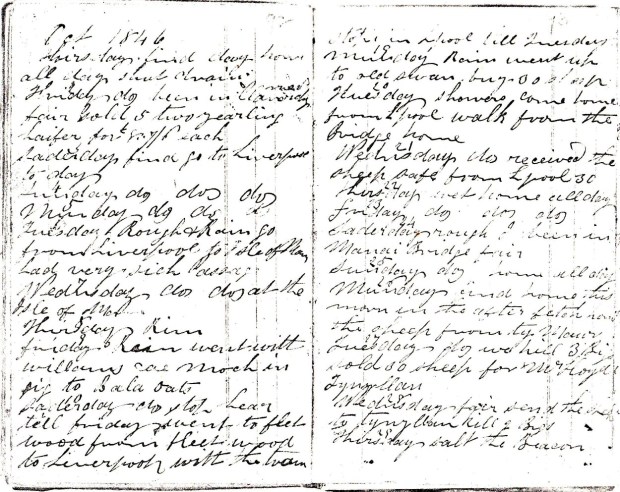 Oct 1846
Thirsday find day home
all day shut drain
Friday do been in
fair sold 5 two yearling
haifer for each
Saderday find go to Liverpool
to day
Sunday do do do
Munday do do do
Tuesday Rough & Rain go
from Liverpool to Isle of Man
had very sick passag
Wedhsday do do at the
Isle of Man
Thursday Rain
friday Rain went with
williams mock in
gig to Bala
Saderday do stop hear
tell friday went to fleet
wood from fleet wood
to Liverpool with the train
stope in Lpool till Tuesday
Munday Rain went up
to old swan buy 30 sheep
Tuesday showers come home
from Lpool walk from the
bridge home
Wedhsday do received the
sheep safe from Lpool 30
Thirsday wet home all day
friday do do do
Saderday rough been in
Manai Bridge fair
Sunday do home all day
Munday find home this
morn in the after
the sheep from ty Mawr
Tuesday do we kill 3 Pigs
sold 30 sheep for Mr
Wedhsday fair send the
to kill 2 Pigs
Thirsday salt the Beacon